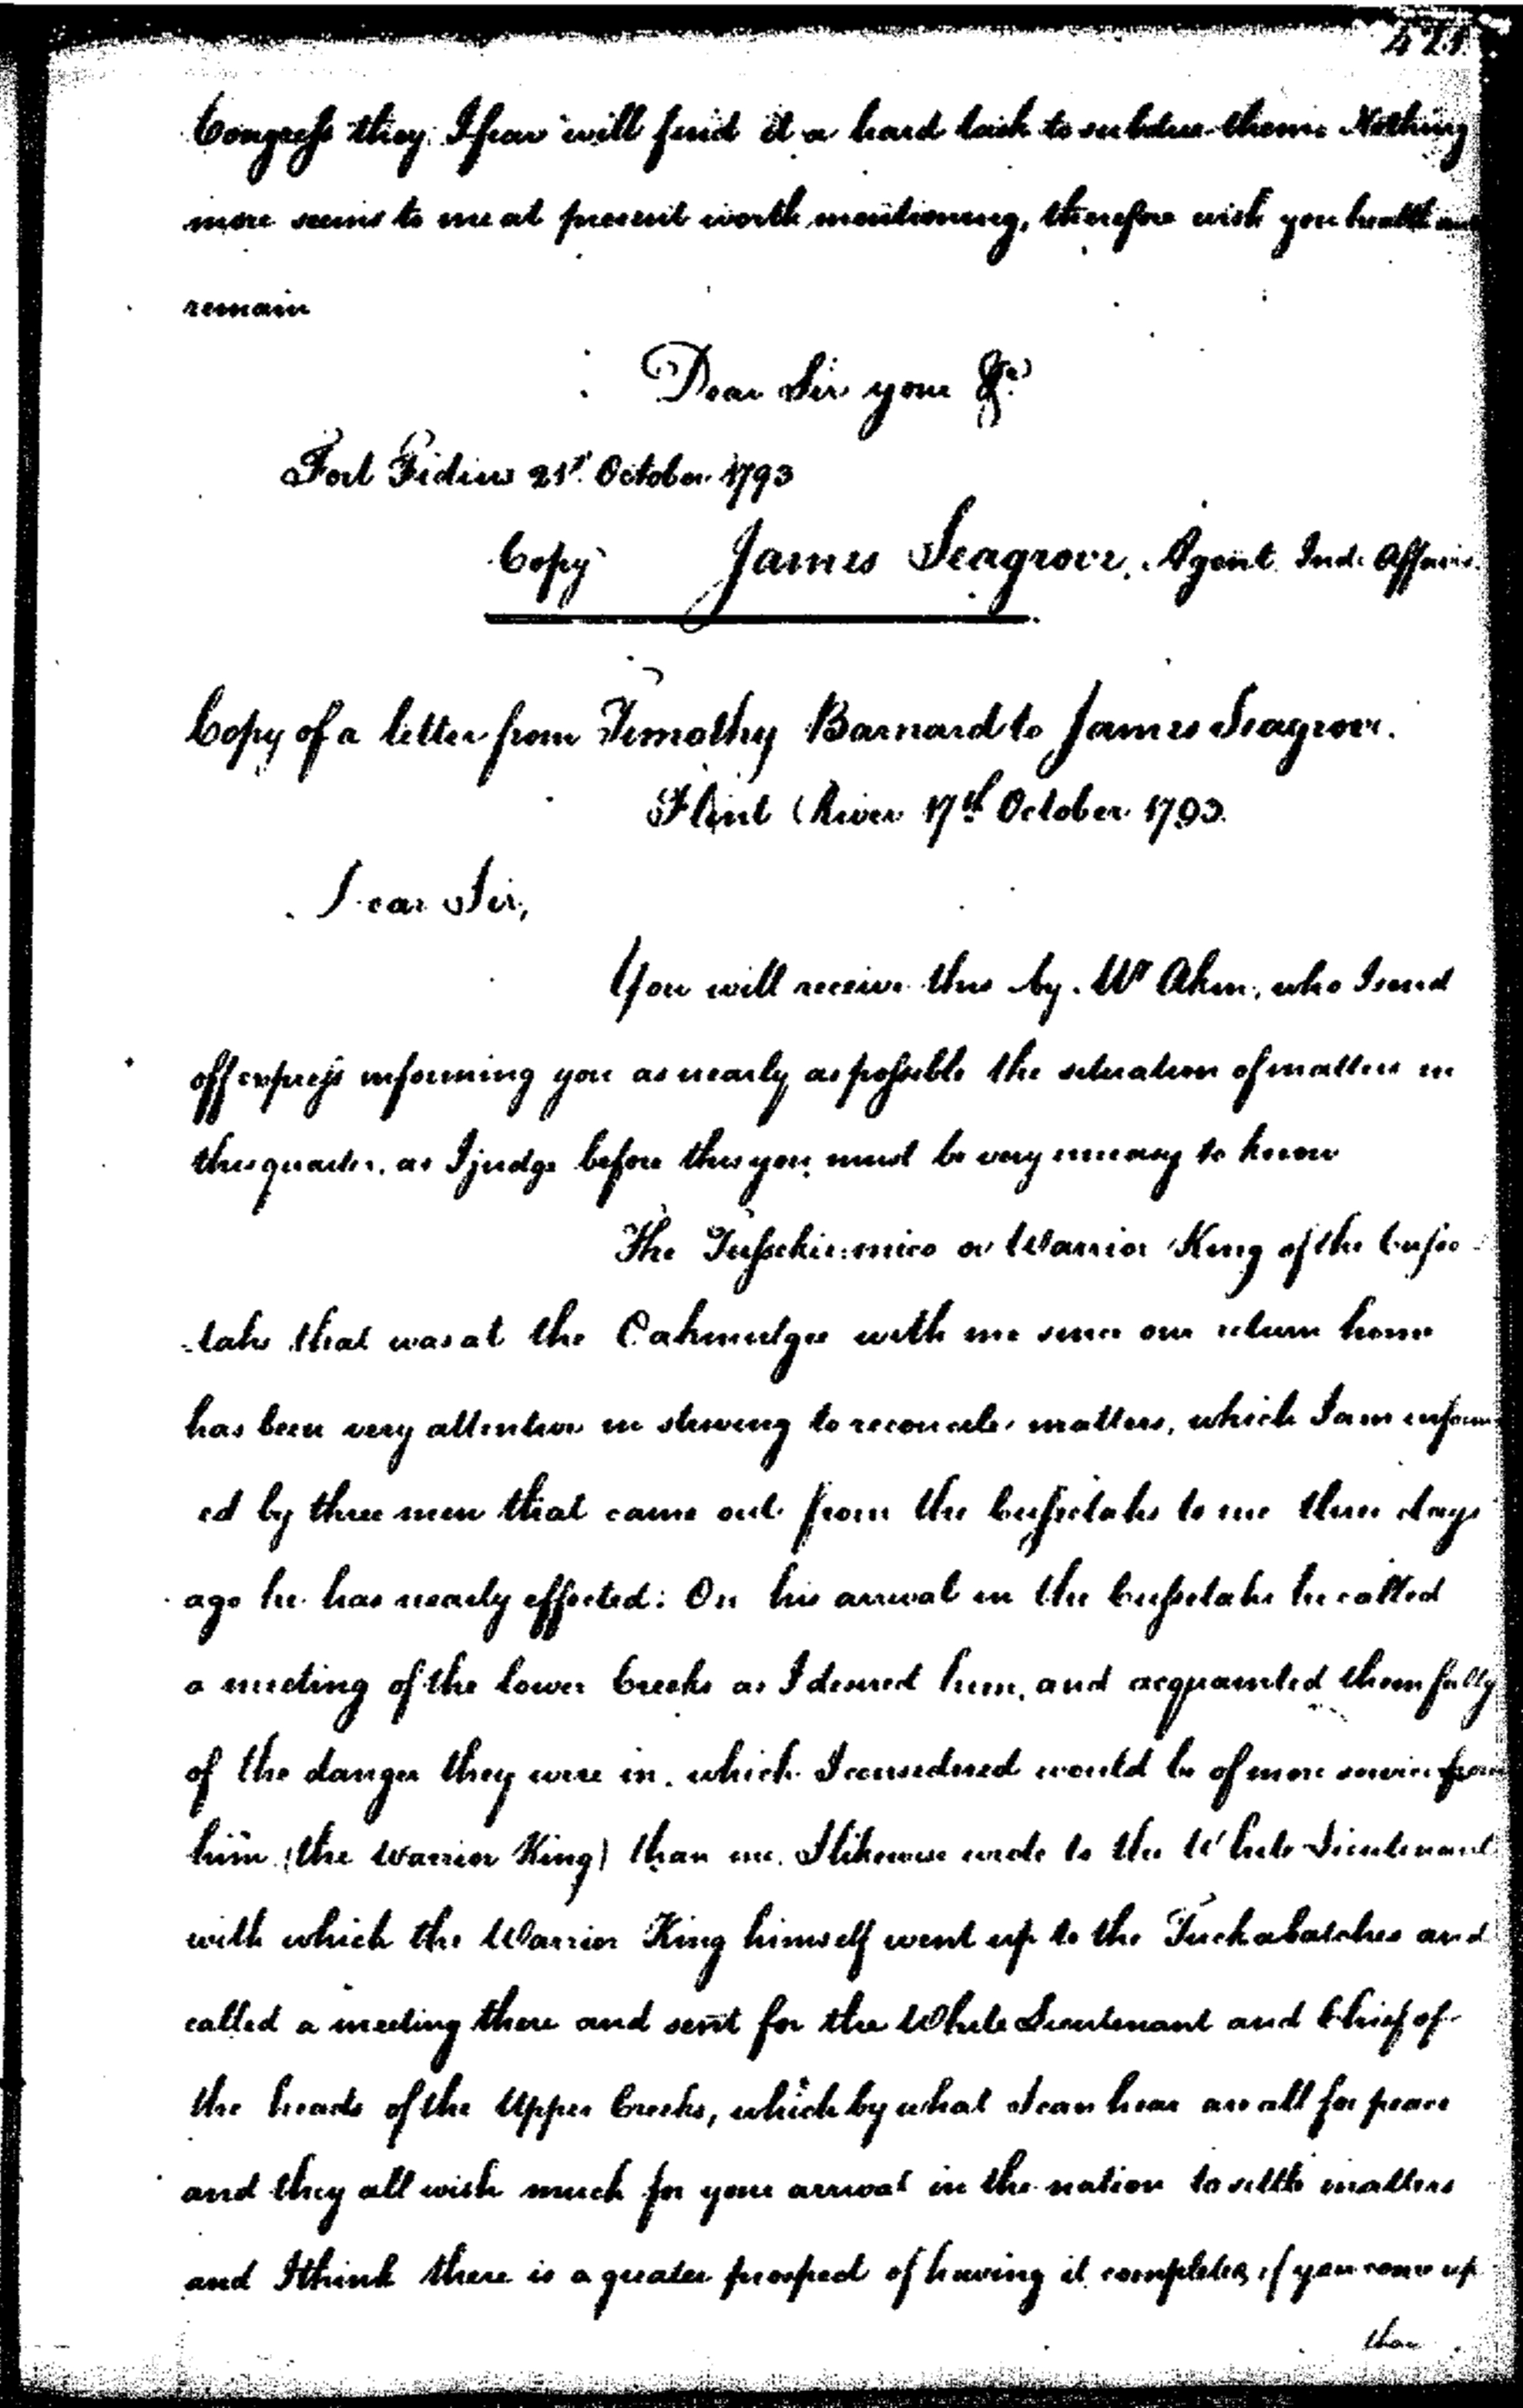 421.
Congress they I fear will find it a hard task to subdue them. Nothing
more seems to me at present worth mentioning, therefore wish you health and
remain
Dear Sir your &c.
Fort Fidius 21st October 1793
Copy James Seagrove, Agent Ind: Affairs.
Copy of a letter from Timothy Barnard to James Seagrove.
Flint River 17th October 1793.
Dear Sir,
You will receive this by Mr Aken, who I send
off express informing you as nearly as possible the situation of matters in
this quarter, as I judge before this you must be very uneasy to know
The Tusschie:mico or Warrior King of the Cusse-
-tahs that was at the Oakmulgee with me since our return home
has been very attentive in striving to reconcile matters, which I am inform
ed by three men that came out from the Cussetahs to me three days
ago he has nearly effected: On his arrival in the Cussetahs he called
a meeting of the lower Creeks as I desired him, and acquainted them fully
of the danger they were in, which I considered would be of more service from
him (the Warrior King) than me. I likewise wrote to the White Lieutenant
with which the Warrior King himself went up to the Tuckabatches and
called a meeting there and sent for the White Lieutenant and Chief of
the heads of the Upper Creeks, which by what I can hear are all for peace
and they all wish much for your arrival in the nation to settle matters
and I think there is a greater prospect of having it completed, if you come up
than